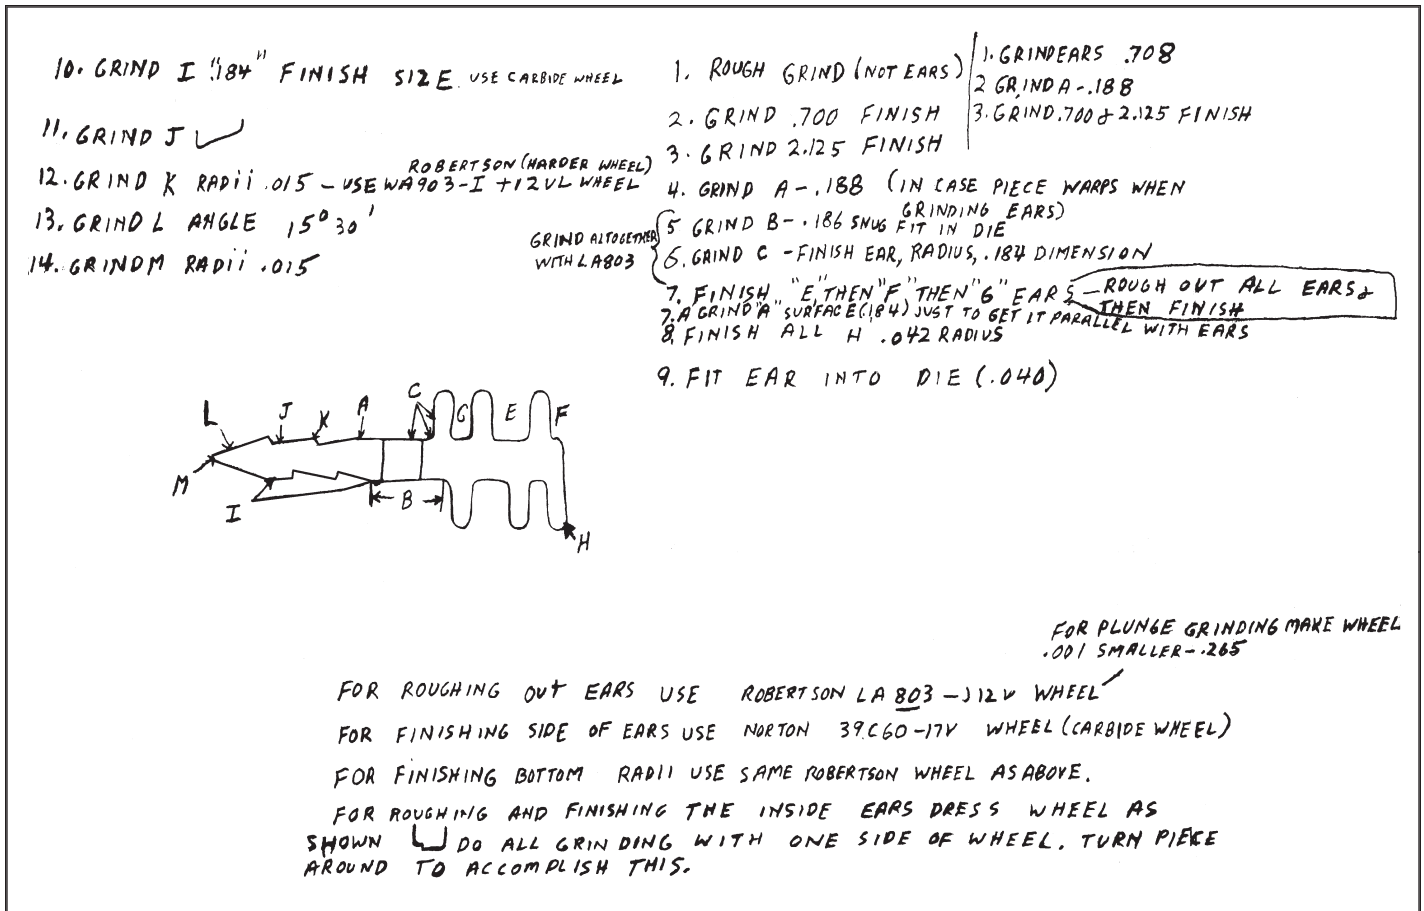 10. GRIND I "184" FINISH SIZE. USE CARBIDE WHEEL
11. GRIND J
ROBERTSON (HARDER WHEEL)
12. GRIND K RADII .015 - USE WA903-I +12VL WHEEL
13. GRIND L ANGLE 15° 30'
14. GRIND M RADII .015
1. ROUGH GRIND (NOT EARS)
2. GRIND .700 FINISH
3. GRIND 2.125 FINISH
1. GRIND EARS .708
2 GRIND A-.188
3. GRIND .700 & 2.125 FINISH
4. GRIND A-.188 (IN CASE PIECE WARPS WHEN
GRINDING EARS)
GRIND ALTOGETHER
WITH LA803
5 GRIND B-.186 SNUG FIT IN DIE
6. GRIND C - FINISH EAR, RADIUS, .184 DIMENSION
7. FINISH "E," THEN "F" THEN "G" EARS - ROUGH OUT ALL EARS &
THEN FINISH
7.A GRIND "A" SURFACE (.184) JUST TO GET IT PARALLEL WITH EARS
8. FINISH ALL H .042 RADIUS
9. FIT EAR INTO DIE (.040)
L
J
K
A
C
G
E
F
M
I
B
H
FOR PLUNGE GRINDING MAKE WHEEL
.001 SMALLER - .265
FOR ROUGHING OUT EARS USE ROBERTSON LA 803-J12V WHEEL
FOR FINISHING SIDE OF EARS USE NORTON 39C60-17V WHEEL (CARBIDE WHEEL)
FOR FINISHING BOTTOM RADII USE SAME ROBERTSON WHEEL AS ABOVE.
FOR ROUGHING AND FINISHING THE INSIDE EARS DRESS WHEEL AS
SHOWN DO ALL GRINDING WITH ONE SIDE OF WHEEL. TURN PIECE
AROUND TO ACCOMPLISH THIS.